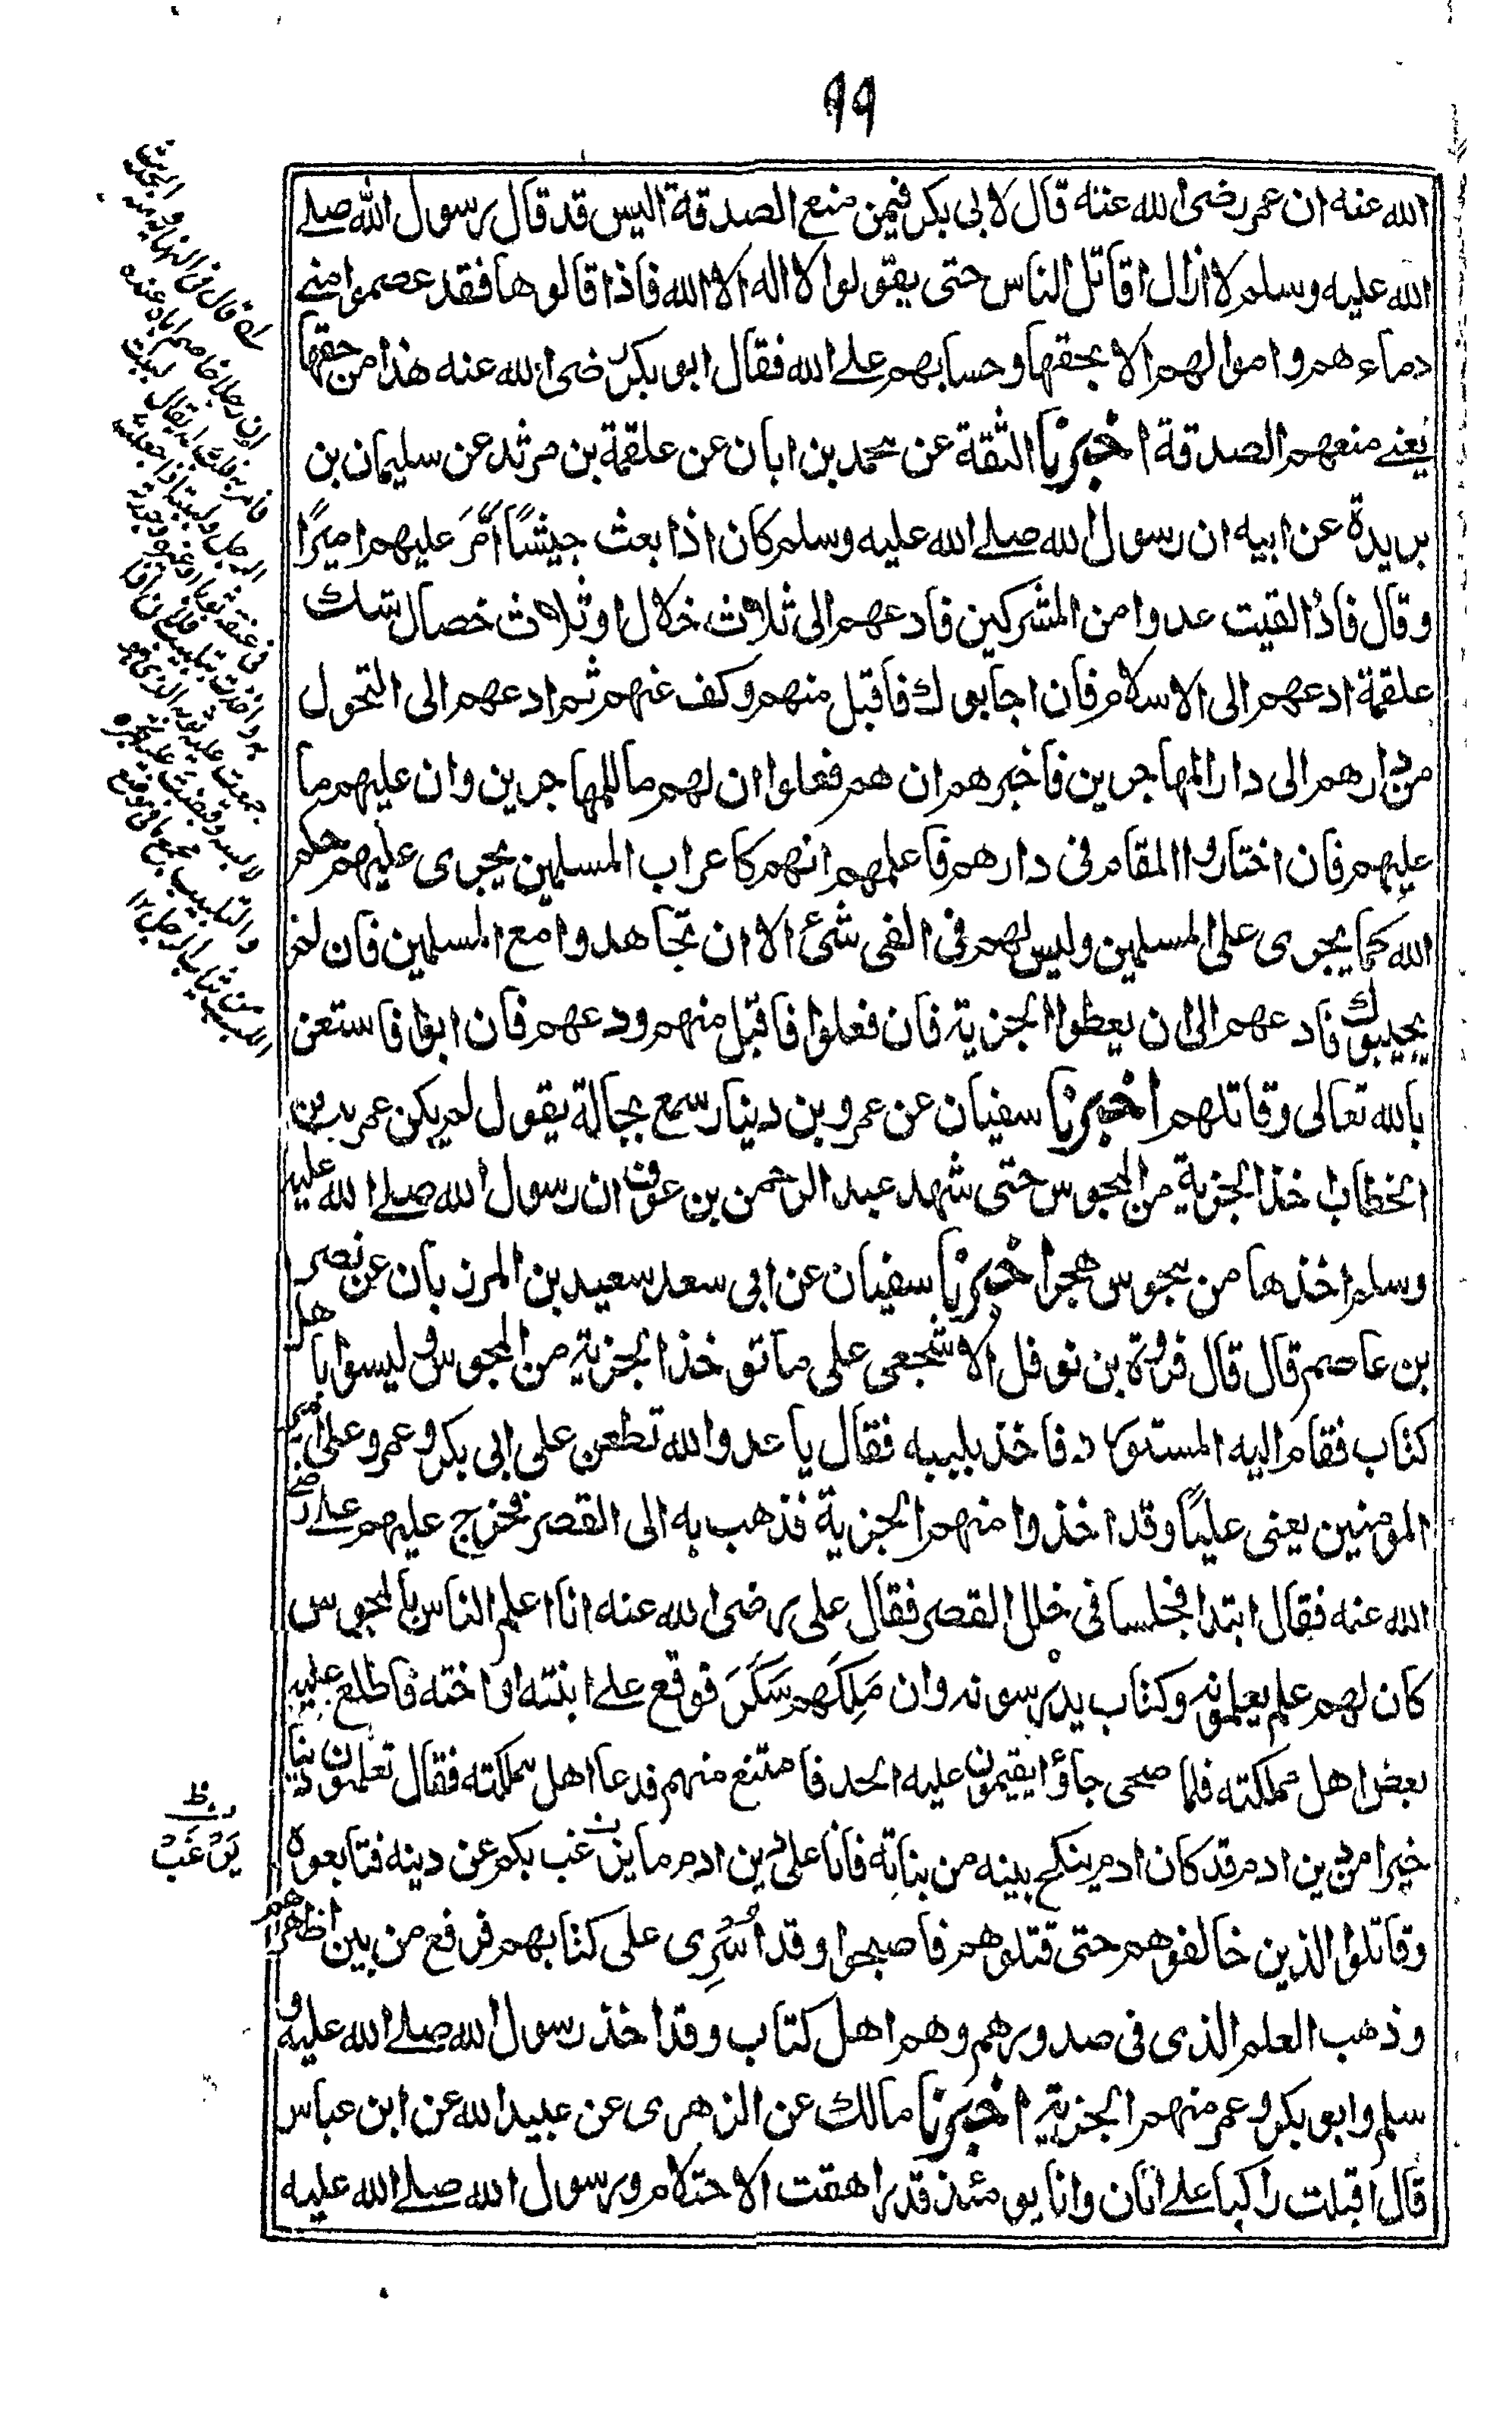 ٩٩
الله عنه ان عمر رضى الله عنه قال لابى بكر فيمن منع الصدقة اليس قد قال رسول الله صلے
الله عليه وسلم لا ازال اقاتل الناس حتى يقولوا لا اله الا الله فاذا قالوها فقد عصموا منے
دماءهم واموالهم الا بحقها وحسابهم علے الله فقال ابو بكر رضى الله عنه هذا من حقها
يعنے منعهم الصدقة اخبرنا الثقة عن محمد بن ابان عن علقمة بن مرثد عن سليمان بن
بريدة عن ابيه ان رسول الله صلے الله عليه وسلم كان اذا بعث جيشًا امَّرَ عليهم اميرًا
وقال فاذا لقيت عدوا من المشركين فادعهم الى ثلاث خلال او ثلاث خصال شك
علقمة ادعهم الى الاسلام فان اجابوك فاقبل منهم وكف عنهم ثم ادعهم الى التحول
من دارهم الى دار المهاجرين فاخبرهم ان هم فعلوا ان لهم ما للمهاجرين وان عليهم ما
عليهم فان اختاروا المقام فى دارهم فاعلمهم انهم كاعراب المسلمين يجرى عليهم حكم
الله كما يجرى على المسلمين وليس لهم فى الفى شئ الا ان تجاهدوا مع المسلمين فان لم
يجيبوك فادعهم الى ان يعطوا الجزية فان فعلوا فاقبل منهم ودعهم فان ابوا فاستعن
بالله تعالى وقاتلهم اخبرنا سفيان عن عمرو بن دينار سمع بجالة يقول لم يكن عمر بن
الخطاب اخذ الجزية من المجوس حتى شهد عبد الرحمن بن عوف ان رسول الله صلے الله عليه
وسلم اخذها من مجوس هجر اخبرنا سفيان عن ابى سعد سعيد بن المرزبان عن نصر
بن عاصم قال قال فروة بن نوفل الاشجعى على ما تؤخذ الجزية من المجوس وليسوا باهل
كتاب فقام اليه المستورد فاخذ بلببه فقال يا عدو الله تطعن على ابى بكر وعمر وعلى امير
المؤمنين يعنى عليًا وقد اخذوا منهم الجزية فذهب به الى القصر فخرج عليهم علے رضے
الله عنه فقال ابتدا فجلسا فى ظلل القصر فقال على رضى الله عنه انا اعلم الناس بالمجوس
كان لهم علم يعلمونه وكتاب يدرسونه وان مَلِكَهم سَكَرَ فوقع علے ابنته او اخته فاطلع عليه
بعض اهل مملكته فلما صحى جاؤا يقيمون عليه الحد فامتنع منهم فدعا اهل مملكته فقال تعلمون دينا
خيرا من دين ادم قد كان ادم ينكح بينه من بناته فانا على دين ادم ما يرغب بكم عن دينه فتابعوه
وقاتلوا الذين خالفوهم حتى قتلوهم فاصبحوا وقد اُسْرِى على كتابهم فرفع من بين اظهرهم
وذهب العلم الذى فى صدورهم وهم اهل كتاب وقد اخذ رسول الله صلے الله عليه و
سلم وابو بكر وعمر منهم الجزية اخبرنا مالك عن الزهرى عن عبيد الله عن ابن عباس
قال اقبلت راكبا علے اتان وانا يومئذ قد راهقت الاحتلام ورسول الله صلے الله عليه
قال فى النهاية فيه والحديث
ان رجلا خاصم اباه عنده
فامر به فلبب له يقال لببت
الرجل ولببته اذا جعلت
فى عنقه ثوبا او غيره وجررته
به واخذت بتلبيب فلان اذا
جمعت عليه ثوبه الذى هو
لابسه وقبضت عليه تجره
والتلبيب مجمع ما فى موضع
اللبب من ثياب الرجل ١٢
يَرْغَبُ